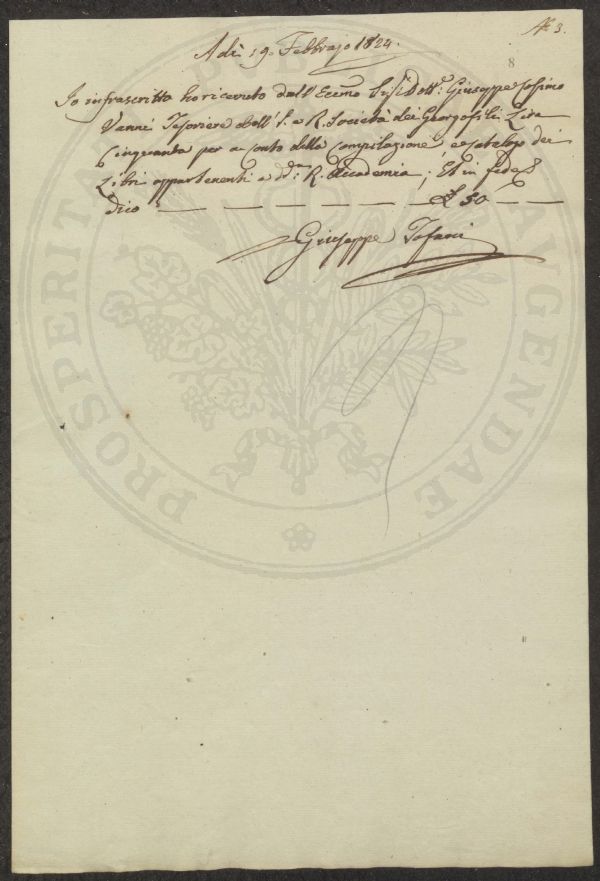 N.° 3.
8
Adì 19. Febbrajo 1824.
Io infrascritto ho ricevuto dall'Eccmo Sig. Dott.e Giuseppe
Vanni Tesoriere dell'I. e R. Società dei Georgofili Lire
Cinquanta per a conto della compilazione e catalogo dei
Libri appartenenti a dda R. Accademia; Et in fede
dico — — — — — — — £ 50 — —
Giuseppe Tofani
PROSPERITATI AUGENDAE